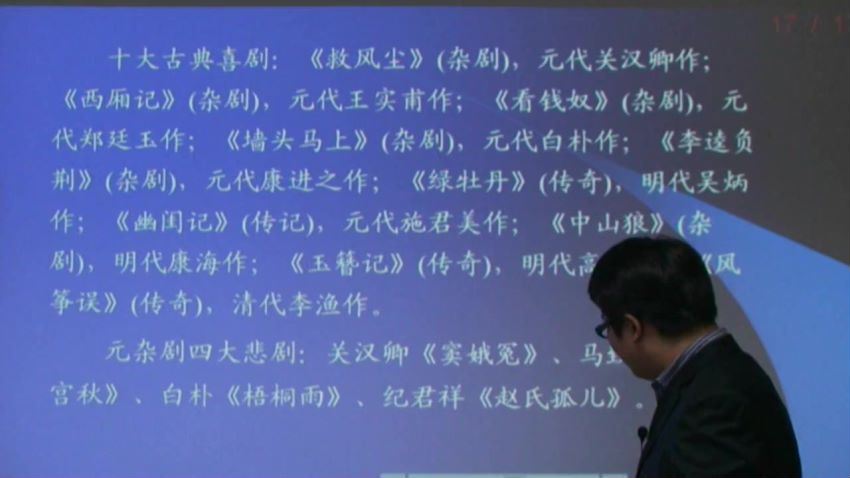 17 / 1
十大古典喜剧：《救风尘》(杂剧)，元代关汉卿作；
《西厢记》(杂剧)，元代王实甫作；《看钱奴》(杂剧)，元
代郑廷玉作；《墙头马上》(杂剧)，元代白朴作；《李逵负
荆》(杂剧)，元代康进之作；《绿牡丹》(传奇)，明代吴炳
作；《幽闺记》(传记)，元代施君美作；《中山狼》(杂
剧)，明代康海作；《玉簪记》(传奇)，明代高 《风
筝误》(传奇)，清代李渔作。
元杂剧四大悲剧：关汉卿《窦娥冤》、马
宫秋》、白朴《梧桐雨》、纪君祥《赵氏孤儿》。